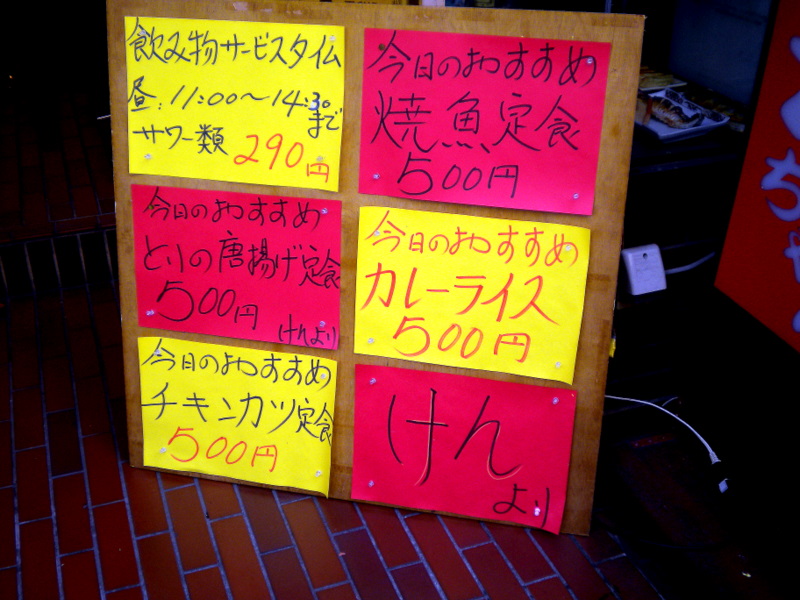 飲み物サービスタイム
昼:11:00～14:30
まで
サワー類 290円
今日のおすすめ
焼魚定食
500円
今日のおすすめ
とりの唐揚げ定食
500円
けんより
今日のおすすめ
カレーライス
500円
今日のおすすめ
チキンカツ定食
500円
けん
より